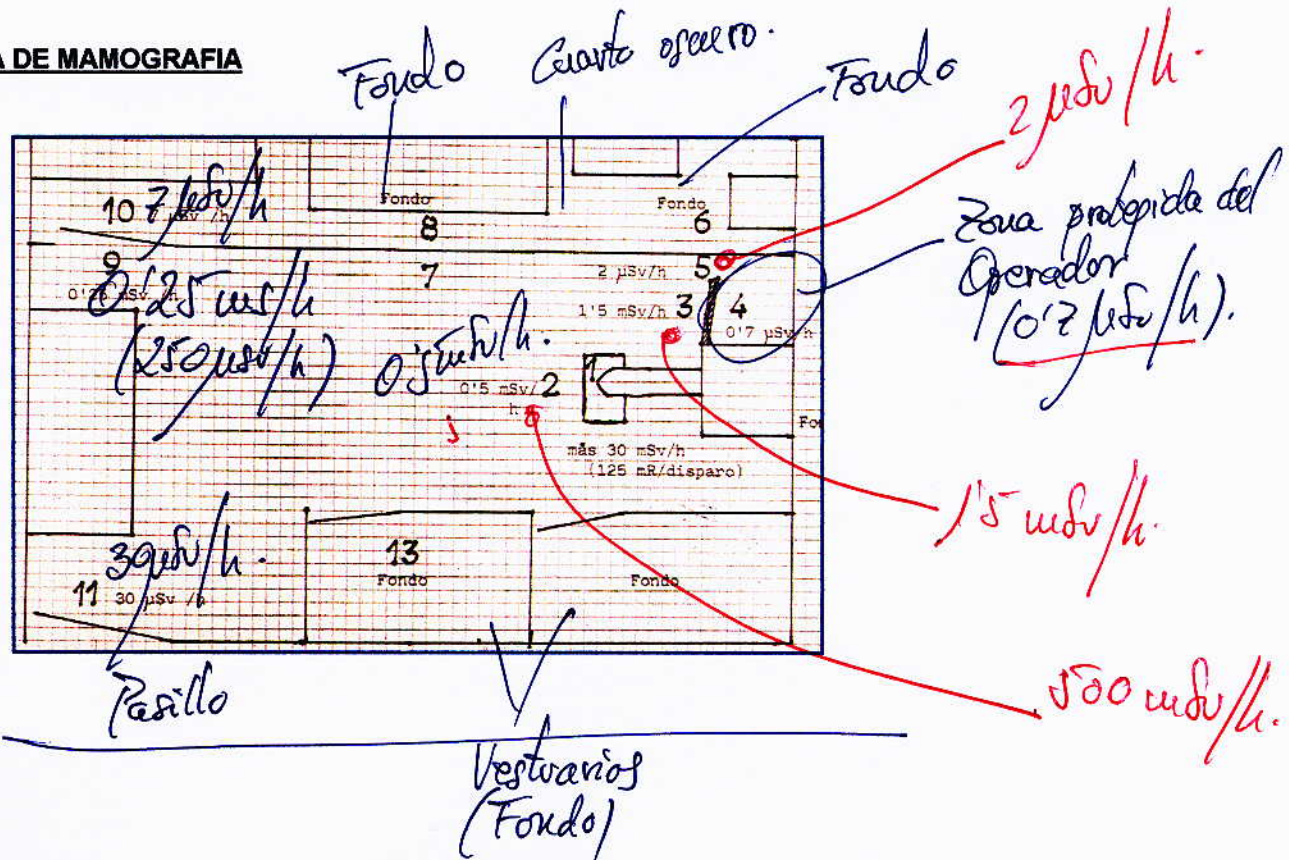 A DE MAMOGRAFIA
Fondo
Cuarto oscuro.
Fondo
2 µSv/h.
Zona protegida del
Operador
(0'7 µSv/h).
10 7 µSv/h
µSv /h
Fondo
8
Fondo
6
9
0'25 mS/h
(250 µSv/h)
7
2 µSv/h 5
1'5 mSv/h 3
4
0'7 µSv/h
0'5 mSv/h.
0'5 mSv/
h
2
1
Fo
más 30 mSv/h
(125 mR/disparo)
1'5 mSv/h.
30 µSv/h.
11 30 µSv /h
13
Fondo
Fondo
500 mSv/h.
Pasillo
Vestuarios
(Fondo)